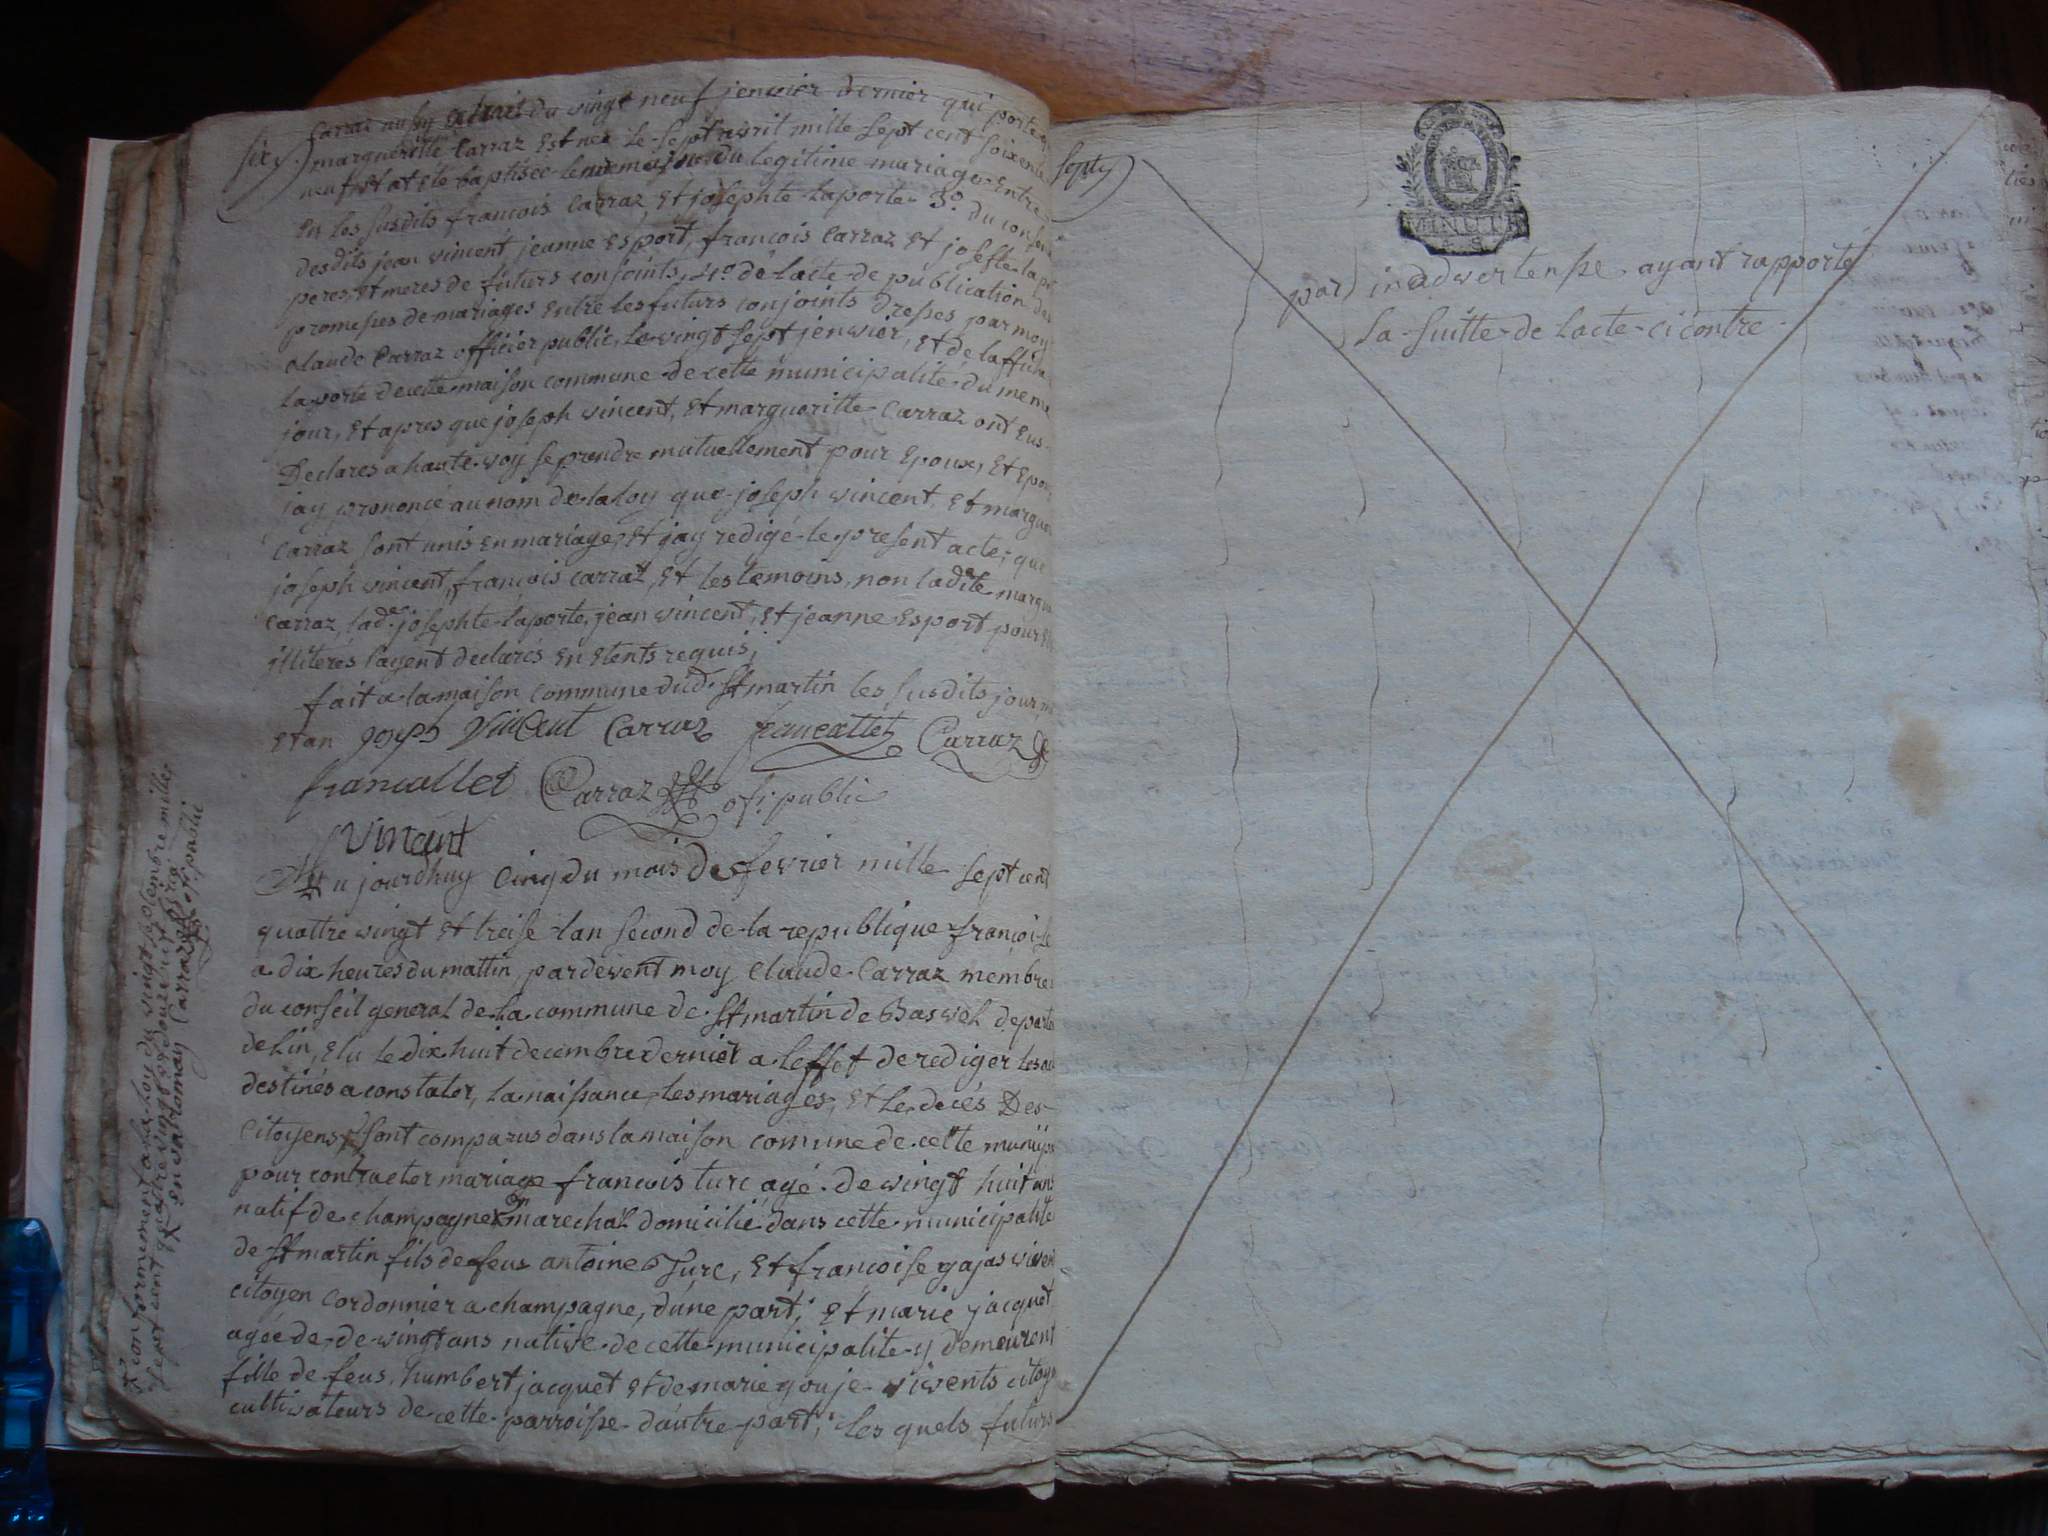 six
Carraz aussy extrait du vingt neuf jenvier dernier qui porte
margueritte Carraz Est née le sept avril mille sept cent soixente
neuf Et at eté baptisée lendemain du legitime mariage Entre
En les susdits francois Carraz Et josephte Laporte 3o du consen
desdits jean vincent jeanne Esport, francois Carraz Et josefte lap
peres, Et meres de futurs conjoints, 4o de lacte de publication des
promesses de mariages Entre les futurs conjoints dresses par moy
Claude Carraz officier public, le vingt sept jenvier, Et de laffich
la porte de cette maison commune de cette municipalité du meme
jour, Et apres que joseph vincent, Et margueritte Carraz ont Eus
Declares a haute voy se prendre mutuellement pour Epoux, Et Epou
jay prononcé au nom de la loy que joseph vincent, Et margue
Carraz sont unis en mariage, Et jay redigé le present acte, que
joseph vincent, francois carraz, Et les temoins, non ladite margue
Carraz, lade. josephte laporte, jean vincent, Et jeanne Esport pour E
illiteres layent declarés En Etents requis,
fait a la maison commune dud. st martin les susdits jour, m
Et an joseph Vincent Carraz francallet Carraz
francallet Carraz ofi: public
Vincent
Au jourdhuy Cinq du mois de fevrier mille sept cent
quattre vingt Et treise lan second de la republique françoise
a dix heures du mattin, pardevent moy Claude Carraz membre
du conseil general de la commune de st martin de Bavel departe
de Lin, Elu le dix huit decembre dernier a leffet de rediger les ac
destinés a constater, la naissance, les mariages, Et le decés Des
Citoyens, sont comparus dans la maison comune de cette municip
pour contracter mariage francois turc agé de vingt huit ans
natif de champagne marechal domicilié dans cette municipalité
de st martin fils de feus antoine Turc, Et francoise gajas viven
citoyen cordonnier a champagne, dune part; Et marie jacquet
agée de de vingt ans native de cette municipalite y demeurent
fille de feus humbert jacquet Et de marie gouje vivents citoy
cultivateurs de cette parroisse dautre part; Les quels futurs
conformement a la loy du vingt septembre mille
sept cent quattre vingt et douze
Carraz ofi: public
septy
MINUTE
4 S
par inadvertense ayant rapporté
la suitte de lacte ci contre